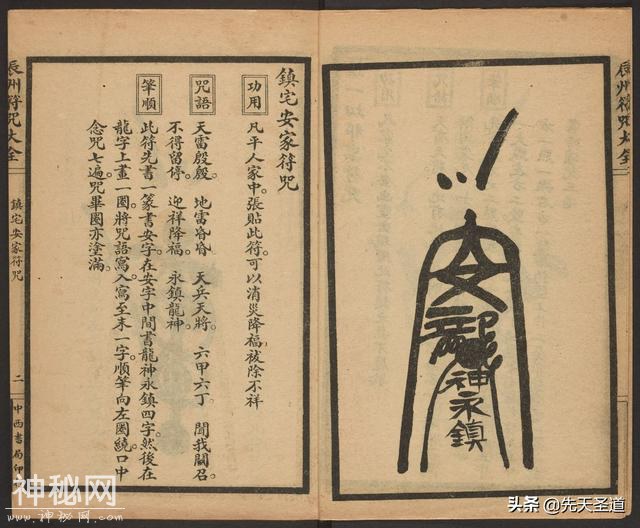 辰州符咒大全
鎮宅安家符咒
功用
凡平人家中張貼此符。可以消災降福。祓除不祥
咒語
天雷殷殷 地雷昏昏 天兵天將 六甲六丁 聞我關召
不得留停 迎祥降福 永鎮龍神
筆順
此符先書一篆書安字。在安字中間書龍神永鎮四字。然後在
龍字上畫一圈。將咒語寫入。寫至末一字。順筆向左圈繞。口中
念咒七遍。咒畢圈亦塗滿。
辰州符咒大全
鎮宅安家符咒
二
中西書局印
安
龍神永鎮
神秘网
WWW.神秘网.COM
头条 @先天圣道